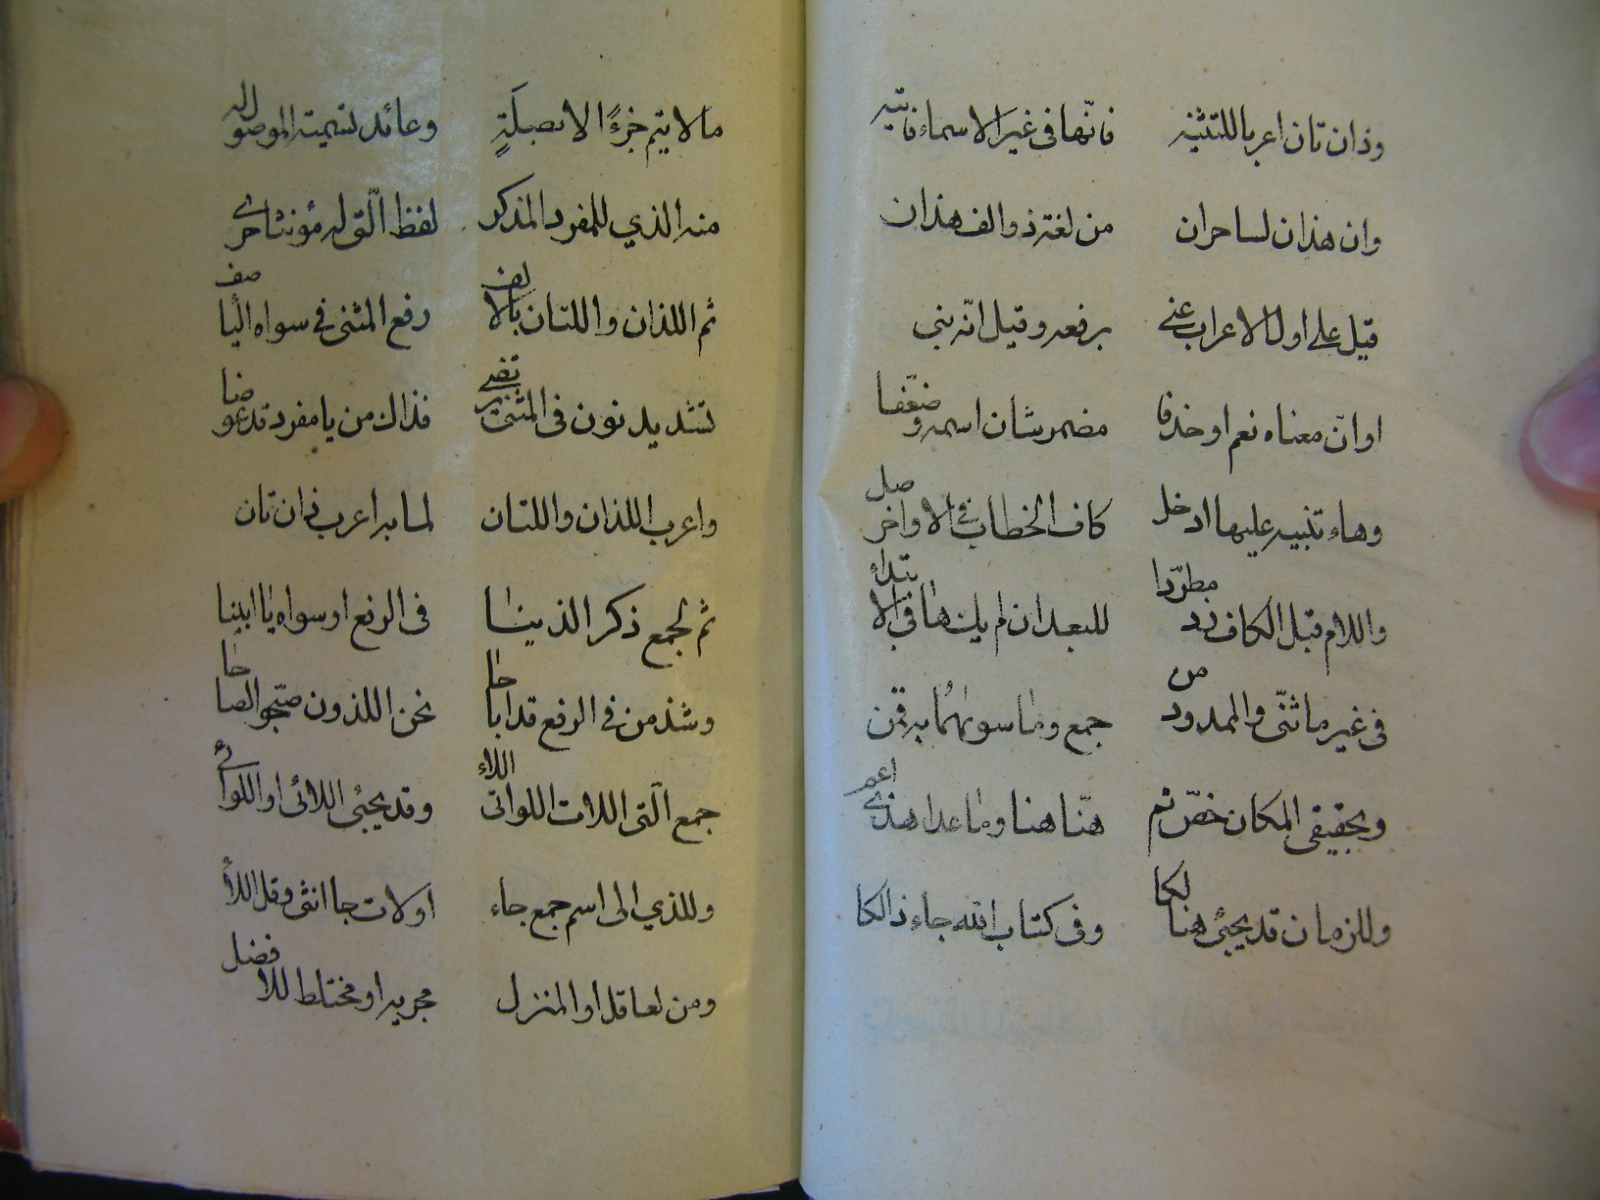 وذان تان اعربا للتثنيه فانّها فى غير الاسماء فانيه
وان هذان لساحران من لغة ذو الف هذان
قيل على اول الاعراب عنى برفعه وقيل انّه بنى
او انّ معناه نعم او حذفا مضمر شان اسمه وضعّفا
وهاء تنبيه عليها ادخل كاف الخطاب فى الاواخر صل
واللام قبل الكاف زد مطرّدا للبعد ان لم يك ها فى الابتداء
فى غير ما ثنّى والممدود من جمع وما سويهما به قمن
وبحقيقى المكان خصّ ثم هنّا هنا وما عدا هذى اعم
وللزمان قد يجئ هنالكا وفى كتاب الله جاء ذالكا
ما لا يتم جزءًا الا بصلَةٍ وعائد تسميته الموصول له
منه الذي للمفرد المذكر لفظ الّتى له مؤنثا حرى
ثم اللذان واللتان بالالف رفع المثنى فى سواه اليا صف
تشديد نون فى المثنى تقضى فذاك من يا مفرد قد عوضا
واعرب اللذان واللتان لما به اعرب ذان تان
ثم لجمع ذكر الذينا فى الرفع او سواه يا ابينا
وشذ من فى الرفع قد اباحا نحن اللذون صبّحوا الصباحا
جمع الّتى اللات اللواتى اللاء وقد يجئ اللائى او اللوائى
وللذي الى اسم جمع جاء اولات جا انثى وقل اللاأ
ومن لعاقل او المنزل مجريه او مختلط للافضل